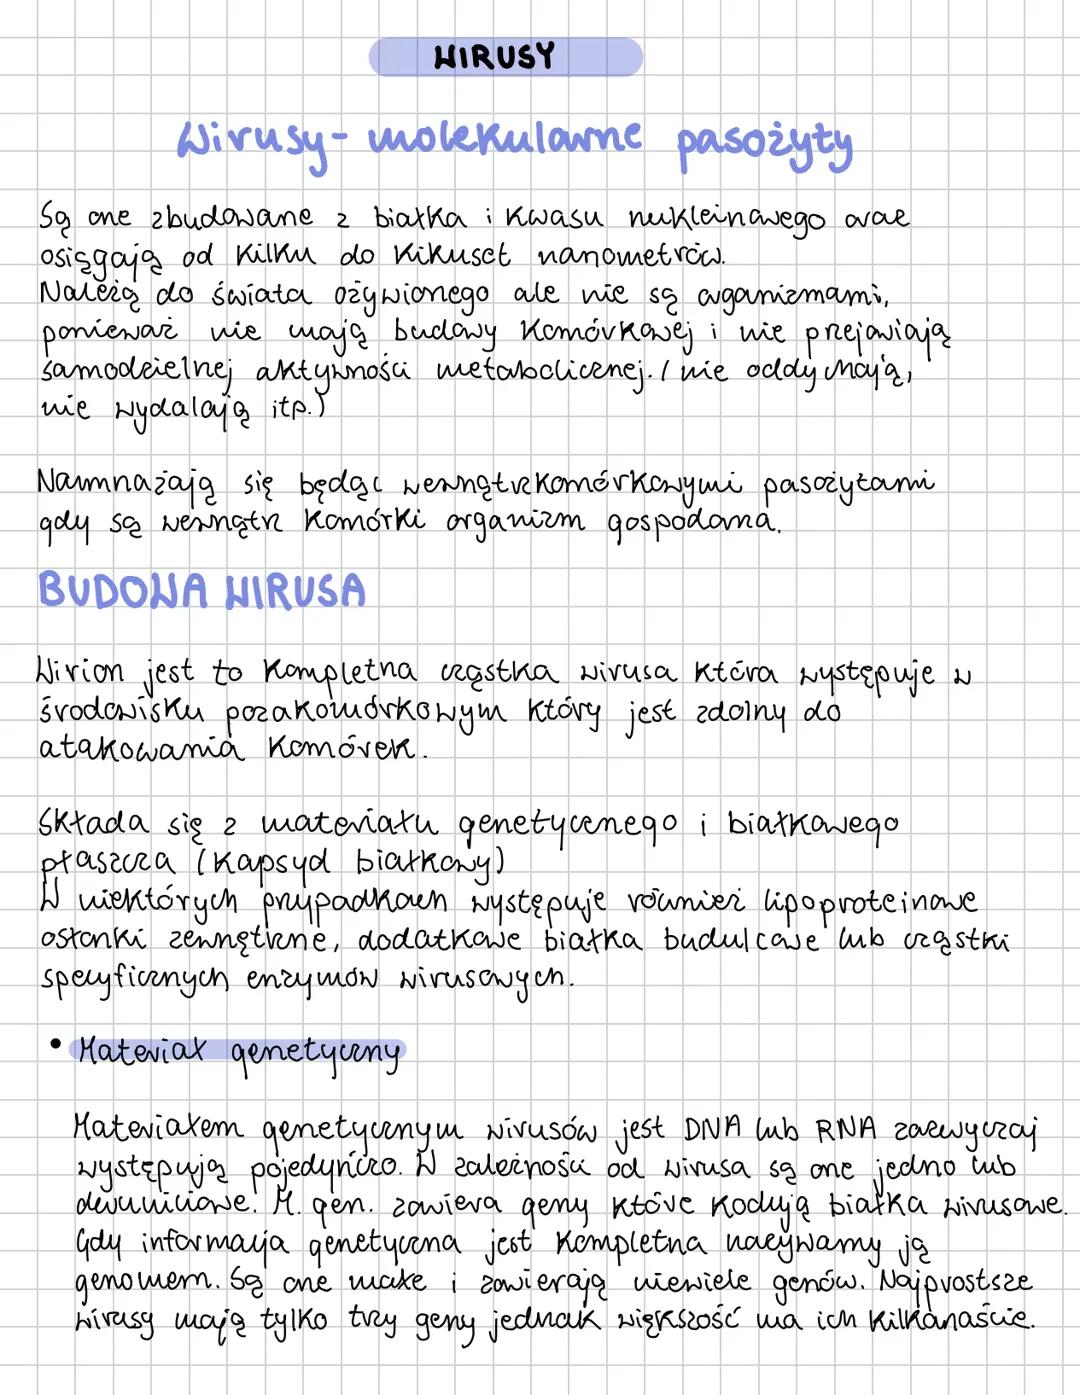 WIRUSY
Wirusy- molekularne pasożyty
Są one zbudowane z białka i kwasu nukleinowego oraz
osięgają od kilku do kikuset nanometrów.
Należą do świata ożywionego ale nie są organizmami,
ponieważ nie mają budowy komórkowej i nie przejawiają
samodzielnej aktywności metabolicznej. ( nie oddychają,
nie wydalają itp.)
Namnażają się będąc wewnątrzkomórkowymi pasożytami
gdy są wewnątrz komórki organizm gospodarza.
BUDOWA WIRUSA
Wirion jest to kompletna cząstka wirusa która występuje w
środowisku pozakomórkowym który jest zdolny do
atakowania komórek.
Składa się z materiału genetycznego i białkowego
płaszcza (kapsyd białkowy)
W niektórych przypadkach występuje również lipoproteinowe
osłonki zewnętrzne, dodatkowe białka budulcowe lub cząstki
specyficznych enzymów wirusowych.
• Materiał genetyczny
Materiałem genetycznym wirusów jest DNA lub RNA zazwyczaj
występują pojedynczo. W zależności od wirusa są one jedno lub
dwuniciowe. M. gen. zawiera geny które kodują białka wirusowe.
Gdy informacja genetyczna jest kompletna nazywamy ją
genomem. Są one małe i zawierają niewiele genów. Najprostsze
wirusy mają tylko trzy geny jednak większość ma ich kilkanaście.